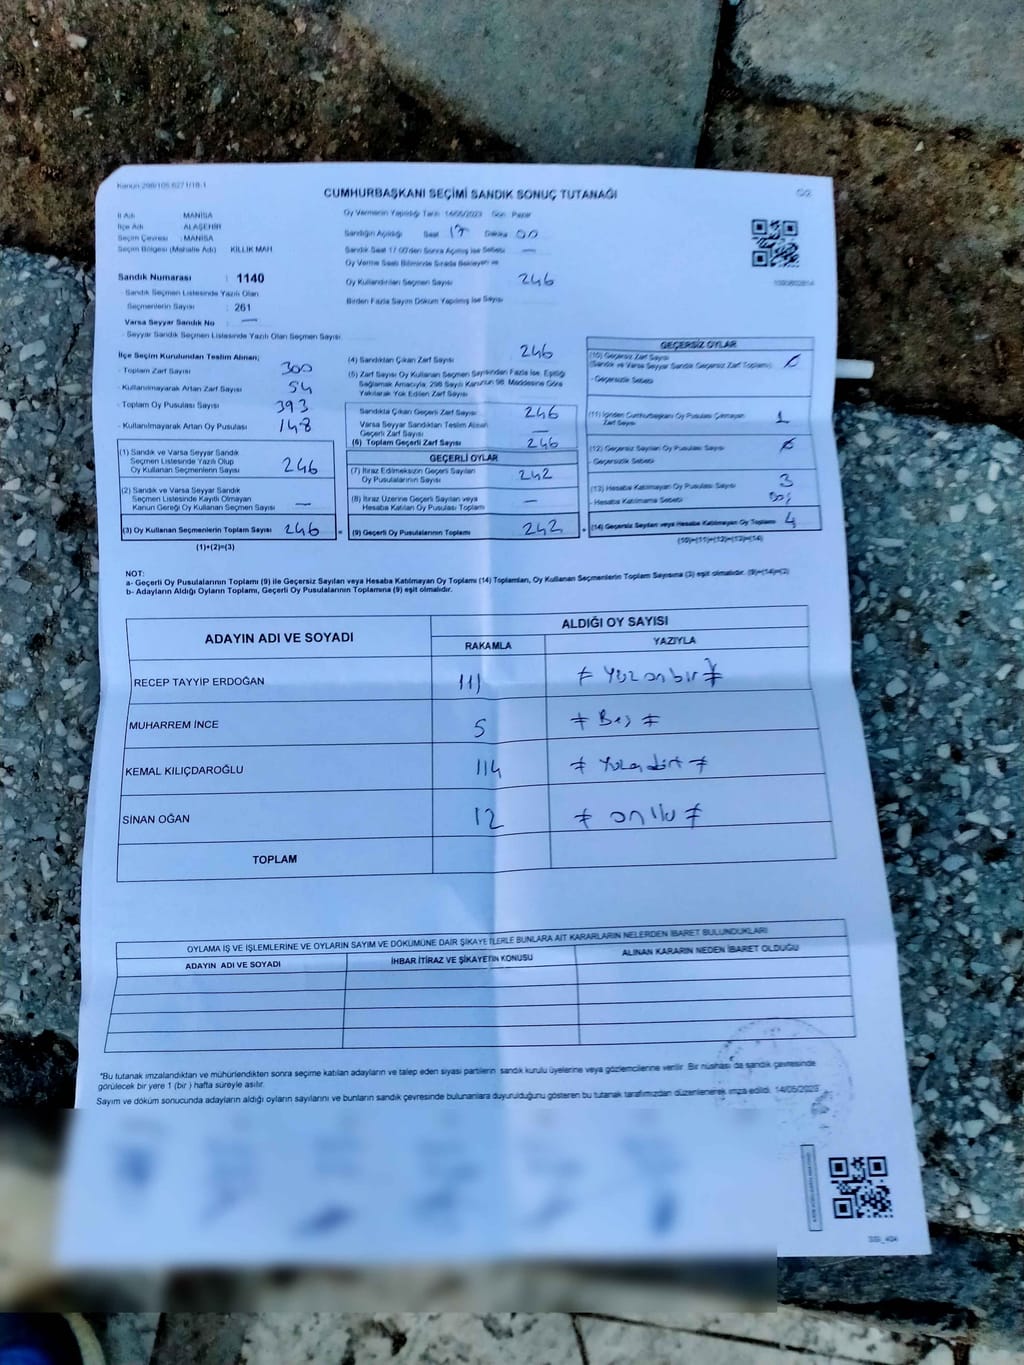 Kanun 298/105,6271/18-1
CUMHURBAŞKANI SEÇİMİ SANDIK SONUÇ TUTANAĞI
İl Adı : MANİSA
İlçe Adı : ALAŞEHİR
Seçim Çevresi : MANİSA
Seçim Bölgesi (Mahalle Adı) KİLLİK MAH.
Oy Vermenin Yapıldığı Tarih 14/05/2023 Gün Pazar
Sandığın Açıldığı Saat 17 Dakika 00
Sandık Saat 17.00'den Sonra Açılmış İse Sebebi —
Oy Verme Saati Bitiminde Sırada Bekleyen ve
Oy Kullandırılan Seçmen Sayısı 246
Birden Fazla Sayım Döküm Yapılmış İse Sayısı
Sandık Numarası : 1140
- Sandık Seçmen Listesinde Yazılı Olan
Seçmenlerin Sayısı : 261
Varsa Seyyar Sandık No : —
- Seyyar Sandık Seçmen Listesinde Yazılı Olan Seçmen Sayısı
İlçe Seçim Kurulundan Teslim Alınan;
- Toplam Zarf Sayısı 300
- Kullanılmayarak Artan Zarf Sayısı 54
- Toplam Oy Pusulası Sayısı 393
- Kullanılmayarak Artan Oy Pusulası 148
(1) Sandık ve Varsa Seyyar Sandık
Seçmen Listesinde Yazılı Olup
Oy Kullanan Seçmenlerin Sayısı 246
(2) Sandık ve Varsa Seyyar Sandık
Seçmen Listesinde Kayıtlı Olmayan
Kanun Gereği Oy Kullanan Seçmen Sayısı —
(3) Oy Kullanan Seçmenlerin Toplam Sayısı 246 =
(1)+(2)=(3)
(4) Sandıktan Çıkan Zarf Sayısı 246
(5) Zarf Sayısı Oy Kullanan Seçmen Sayısından Fazla İse, Eşitliği
Sağlamak Amacıyla; 298 Sayılı Kanunun 98. Maddesine Göre
Yakılarak Yok Edilen Zarf Sayısı
Sandıkta Çıkan Geçerli Zarf Sayısı 246
Varsa Seyyar Sandıktan Teslim Alınan
Geçerli Zarf Sayısı —
(6) Toplam Geçerli Zarf Sayısı 246
GEÇERLİ OYLAR
(7) İtiraz Edilmeksizin Geçerli Sayılan
Oy Pusulalarının Sayısı 242
(8) İtiraz Üzerine Geçerli Sayılan veya
Hesaba Katılan Oy Pusulası Toplam —
(9) Geçerli Oy Pusulalarının Toplamı 242 +
GEÇERSİZ OYLAR
(10) Geçersiz Zarf Sayısı
(Sandık ve Varsa Seyyar Sandık Geçersiz Zarf Toplamı)
- Geçersizlik Sebebi
(11) İçinden Cumhurbaşkanı Oy Pusulası Çıkmayan
Zarf Sayısı 1
(12) Geçersiz Sayılan Oy Pusulası Sayısı
- Geçersizlik Sebebi
(13) Hesaba Katılmayan Oy Pusulası Sayısı 3
- Hesaba Katılmama Sebebi
(14) Geçersiz Sayılan veya Hesaba Katılmayan Oy Toplamı 4
(10)+(11)+(12)+(13)=(14)
NOT:
a- Geçerli Oy Pusulalarının Toplamı (9) ile Geçersiz Sayılan veya Hesaba Katılmayan Oy Toplamı (14) Toplamları, Oy Kullanan Seçmenlerin Toplam Sayısına (3) eşit olmalıdır. (9)+(14)=(3)
b- Adayların Aldığı Oyların Toplamı, Geçerli Oy Pusulalarının Toplamına (9) eşit olmalıdır.
ADAYIN ADI VE SOYADI ALDIĞI OY SAYISI
RAKAMLA YAZIYLA
RECEP TAYYİP ERDOĞAN 111 ≠ Yüzonbir ≠
MUHARREM İNCE 5 ≠ Beş ≠
KEMAL KILIÇDAROĞLU 114 ≠ Yüzondört ≠
SİNAN OĞAN 12 ≠ oniki ≠
TOPLAM
OYLAMA İŞ VE İŞLEMLERİNE VE OYLARIN SAYIM VE DÖKÜMÜNE DAİR ŞİKAYETLERLE BUNLARA AİT KARARLARIN NELERDEN İBARET BULUNDUKLARI
ADAYIN ADI VE SOYADI İHBAR İTİRAZ VE ŞİKAYETİN KONUSU ALINAN KARARIN NEDEN İBARET OLDUĞU
*Bu tutanak imzalandıktan ve mühürlendikten sonra seçime katılan adayların ve talep eden siyasi partilerin sandık kurulu üyelerine veya gözlemcilerine verilir. Bir nüshası da sandık çevresinde
görülecek bir yere 1 (bir ) hafta süreyle asılır.
Sayım ve döküm sonucunda adayların aldığı oyların sayılarını ve bunların sandık çevresinde bulunanlara duyurulduğunu gösteren bu tutanak tarafımızdan düzenlenerek imza edildi. 14/05/2023